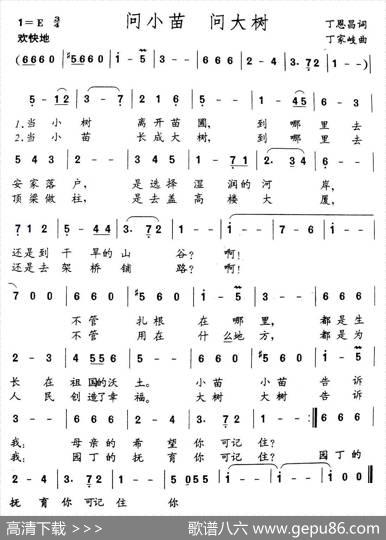 问小苗 问大树
1=E 3/4
丁恩昌词
欢快地
丁家岐曲
(6660 | #5660 | i - 5 | 3 - - | 6660 | 2 - 4 | 3· 72 | 1 - -) |
5 - 12 | 3 - - | 5 - 17 | 6 - - | 1 - 45 | 6 - 3 |
1.当小树 离开苗圃, 到哪里去
2.当小苗 长成大树, 到哪里去
5 4 3 | 2 - - | 5 4 3 | 1 - 71 | 2· 34 | 6 - - |
安家落户, 是选择湿润的河岸,
顶梁做柱, 是去盖高楼大厦,
7 1 2 | 5 - 44 | 3· 72 | 1 - - | i - - | 7 - 6 | i - - |
还是到干旱的山谷?啊!
还是去架桥铺路?啊!
7 0 0 | 6 6 0 | 6 6 0 | #5 6 0 | i - 5 | 3 - - | 6 6 0 |
不管扎根在哪里, 都是生
不管用在什么地方, 都是为
2 - 3 | 4 555 | 6 - - | 6 6 0 | #5 6 0 | i - 5 |
长在祖国的沃土。小苗小苗告诉
人民创造了幸福。大树大树告诉
3 - - | 6 6 0 | 2 - 4 | 3· 72 | 1 - - :‖ 6 6 0 |
我:母亲的希望你可记住?
我:园丁的抚育你可记住? 园丁的
2 - 4 | 3· 72 | 1 - - | 5 055 | i - - | i - - | i 0 0 ‖
抚育你可记住 你
高清下载 >>>
歌谱八六 www.gepu86.com